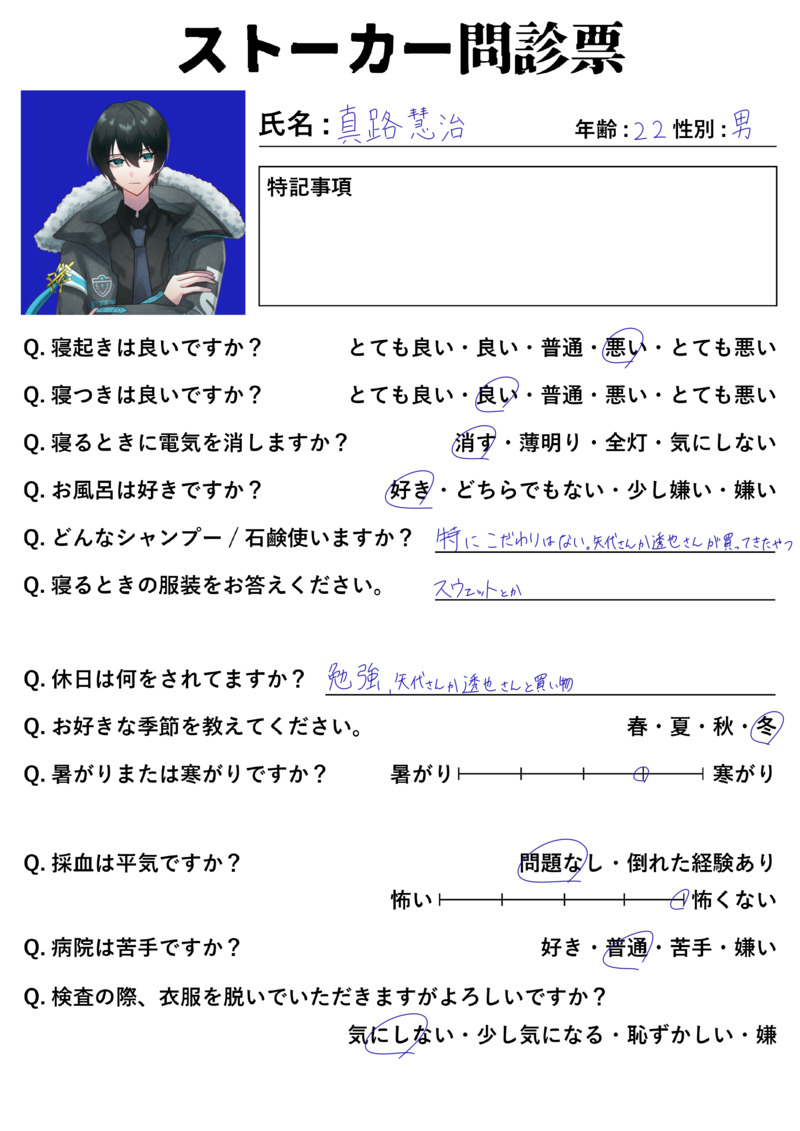 ストーカー問診票
氏名：真路慧治 年齢：22 性別：男
特記事項
Q. 寝起きは良いですか？ とても良い・良い・普通・悪い・とても悪い
Q. 寝つきは良いですか？ とても良い・良い・普通・悪い・とても悪い
Q. 寝るときに電気を消しますか？ 消す・薄明り・全灯・気にしない
Q. お風呂は好きですか？ 好き・どちらでもない・少し嫌い・嫌い
Q. どんなシャンプー / 石鹸使いますか？ 特にこだわりはない。矢代さんか透也さんが買ってきたやつ
Q. 寝るときの服装をお答えください。 スウェットとか
Q. 休日は何をされてますか？ 勉強、矢代さんか透也さんと買い物
Q. お好きな季節を教えてください。 春・夏・秋・冬
Q. 暑がりまたは寒がりですか？ 暑がり 寒がり
Q. 採血は平気ですか？ 問題なし・倒れた経験あり
怖い 怖くない
Q. 病院は苦手ですか？ 好き・普通・苦手・嫌い
Q. 検査の際、衣服を脱いでいただきますがよろしいですか？
気にしない・少し気になる・恥ずかしい・嫌